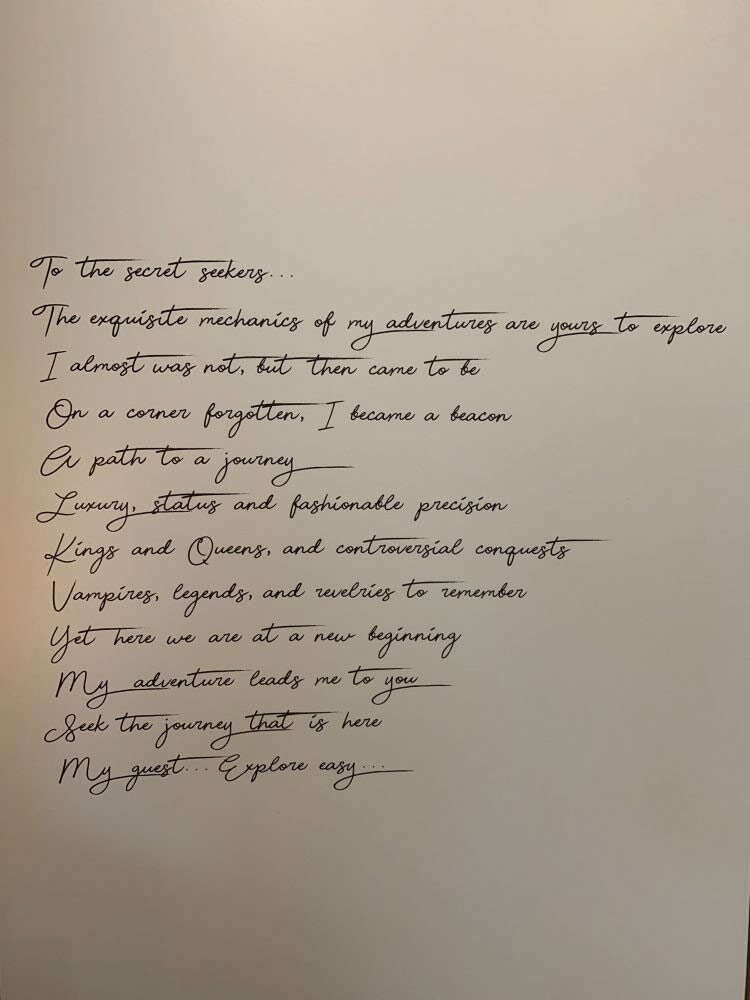 To the secret seekers...
The exquisite mechanics of my adventures are yours to explore
I almost was not, but then came to be
On a corner forgotten, I became a beacon
A path to a journey
Luxury, status and fashionable precision
Kings and Queens, and controversial conquests
Vampires, legends, and revelries to remember
Yet here we are at a new beginning
My adventure leads me to you
Seek the journey that is here
My guest... Explore easy...